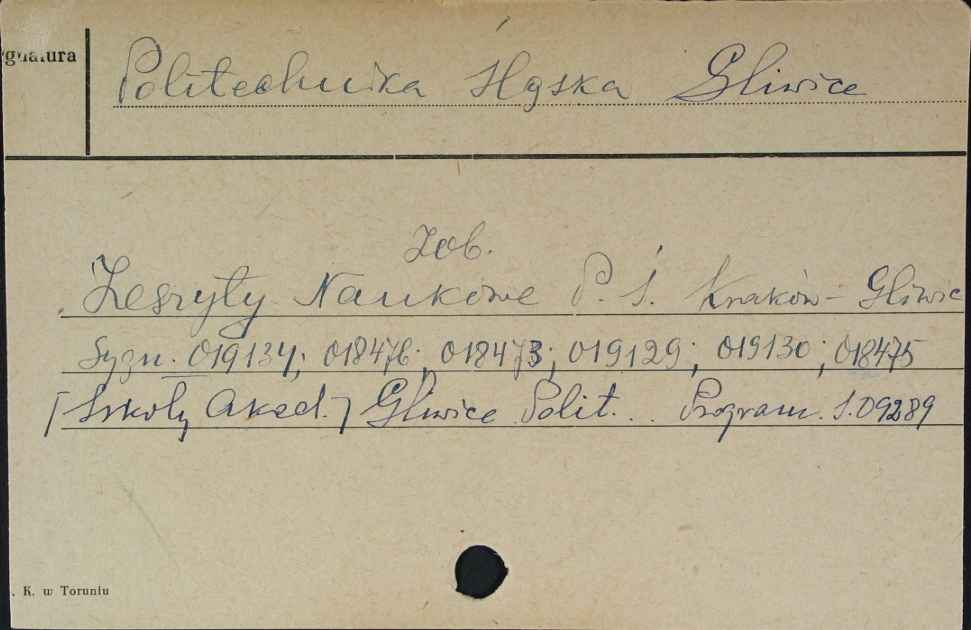 gnatura
Politechnika Śląska Gliwice
Zob.
Zeszyty Naukowe P. Ś. Kraków - Gliwic
Sygn. 019134; 018476; 018473; 019129; 019130; 018475
[Szkoły Akad.] Gliwice Polit. . Program. S. 09289
. K. w Toruniu